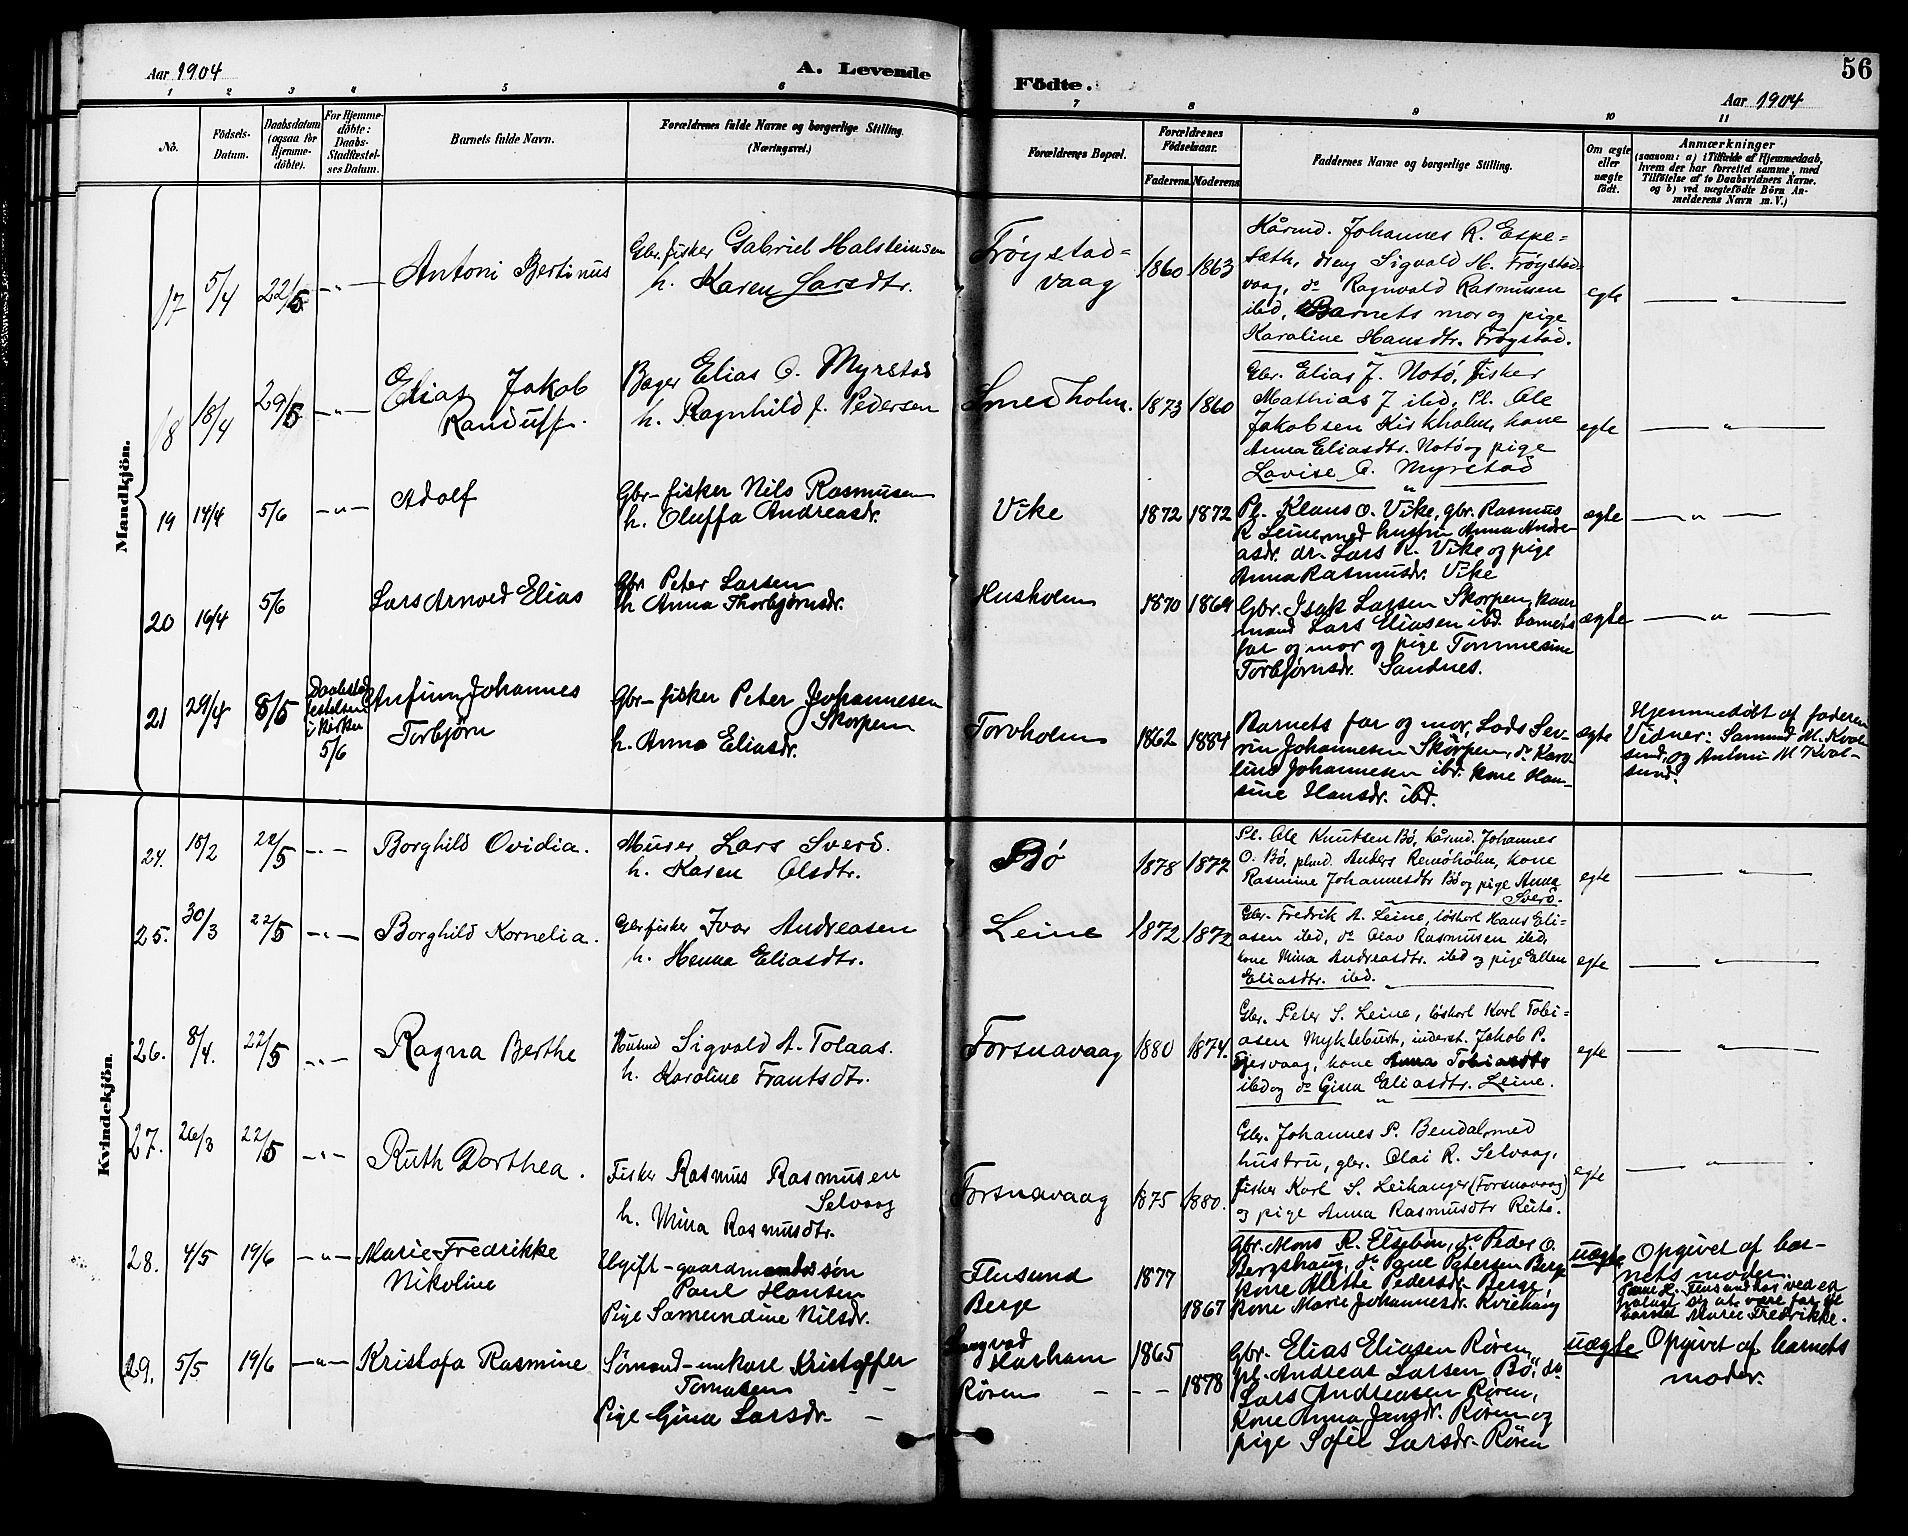 Aar 1904
A. Levende
Födte.
56
Aar 1904
1 2 3 4 5 6 7 8 9 10 11
No.
Födsels-
Datum.
Daabsdatum
(ogsaa for
Hjemme-
döbte).
For Hjemme-
döbte:
Daabs-
Stadfæstel-
ses Datum.
Barnets fulde Navn.
Forældrenes fulde Navne og borgerlige Stilling.
(Næringsvei.)
Forældrenes Bopæl.
Forældrenes
Födselsaar.
Faderens. Moderens.
Faddernes Navne og borgerlige Stilling.
Om ægte
eller
uægte
födt.
Anmærkninger
(saasom: a) i Tilfælde af Hjemmedaab,
hvem der har forrettet samme, med
Tilföielse af to Daabsvidners Navne.
og b) ved uægtefödte Börn An-
melderens Navn m. V.)
Mandkjön.
17 5/4 22/5 — " —
Antoni Bertinus
Gbr. fisker Gabriel Halsteinsen
h. Karen Larsdtr.
Frøystad-
vaag
1860 1863
Kårmd. Johannes R. Espe-
sæth, dreng Sigvald H. Frøystad-
vaag, do Ragnvald Rasmussen
ibid, Barnets mor og pige
Karoline Hansdtr. Frøystad.
egte
— " —
18 18/4 29/5 — " —
Elias Jakob
Randulf.
Bøger Elias O. Myrstad
h. Ragnhild J. Pedersen
Smedholm.
1873 1860
Gbr. Elias J. Notø, fisker
Mathias J ibd, Pl. Ole
Jakobsen Kirkholm, kone
Anna Eliasdtr. Notø og pige
Lovise O. Myrstad
egte
— " —
19 14/4 5/6 — " —
Adolf
Gbr-fisker Nils Rasmusen
h. Oluffa Andreasdr.
Vike
1872 1872
Pl. Klaus O. Vike, gbr. Rasmus
R Leine med hustru Anna Andre-
asdr. dr. Lars R. Vike og pige
Anna Rasmusdr. Vike
ægte
— " —
20 16/4 5/6
Lars Arnold Elias
Gbr Peter Larsen
h Anna Thorbjørnsdr.
Husholm
1870 1869
Gbr. Isak Larsen Skorpen, kaar
mand Lars Eliasen ibd. barnets
far og mor og pige Tommesine
Torbjørnsdr. Sandnes.
ægte
— " —
21 29/4 8/5
Daabstad
festelsen
i kirken
5/6
Anfinn Johannes
Torbjørn
Gbr-fisker Peter Johannesen
Skorpen
h. Anna Eliasdr.
Torvholm
1862 1884
Barnets far og mor, Lods Sev-
rin Johannesen Skorpen, do Karo-
line Johannesen ibd. kone Han-
sine Hansdr. ibd.
ægte
Hjemmedøbt af faderen
Vidner: Samund M. Kval
sund, og Antoni M Kval-
sund.
Kvindekjön.
24. 18/2 22/5 — " —
Borghild Ovidia.
Murer Lars Sverd.
h. Karen Olsdtr.
Bø
1878 1872
Pl. Ole Knutsen Bø, kårmd. Johannes
O. Bø, plmd. Anders Remøholm, kone
Rasmine Johannesdtr Bø og pige Anna
Sverd.
egte
— " —
25. 30/3 22/5 — " —
Borghild Kornelia.
Gbr fisker Ivar Andreasen
h. Hanna Eliasdtr.
Leine
1872 1872
Gbr. Fredrik A. Leine, løskarl Hans Eli-
asen ibd, do Olav Rasmusen ibd,
kone Mina Andreasdtr. ibd og pige Ellen
Eliasdtr. ibd.
egte
— " —
26. 8/4. 22/5 — " —
Ragna Berthe
Husmd Sigvald A. Tolaas.
h. Karoline Frantsdtr.
Fosnavaag
1880 1874.
Gbr. Peter S. Leine, løskarl Karl Tobi-
asen Myklebust, inderst. Jakob P.
Gjersvaag, kone Anna Tobiasdtr
ibd og do Gina Eliasdtr. Leine.
egte
— " —
27. 26/3 22/5 — " —
Ruth Dorthea.
Fisker Rasmus Rasmusen
Selvaag
h. Mina Rasmusdtr.
Fosnavaag
1875 1880.
Gbr. Johannes P. Bendal, med
hustru, gbr. Olai R. Selvaag,
fisker Karl S. Leikanger (Fosnavaag)
og pige Anna Rasmusdtr Reite.
egte
— " —
28. 4/5 19/6 — " —
Marie Fredrikke
Nikoline
Ugift-gaardmandssøn
Paul Hansen
Pige Samundine Nilsdr.
Flusund
Berge
1877
1867
Gbr. Mons R. Elsebøn, do Peder O.
Bergshaug, do Paul Petersen Berge
kone Alette Pedersdr Berge
kone Marie Johannesdr. Kvihaug
uægte
Opgivet af bar-
nets moder.
Paul H. Flusund har veder
barnet Marie Fredrikke.
29. 5/5 19/6 — " —
Kristofa Rasmine
Sømand-unkarl Kristoffer
Tomasen
Pige Gina Larsdr. —
Langvad
Harham
Røren - - -
1865
1878
Gbr. Elias Eliasen Røren,
pl. Andreas Larsen Bø, do
Lars Andreasen Røren,
Kone Anna Jensdr. Røren og
pige Sofie Larsdr. Røren
uægte
Opgivet af barnets
moder.